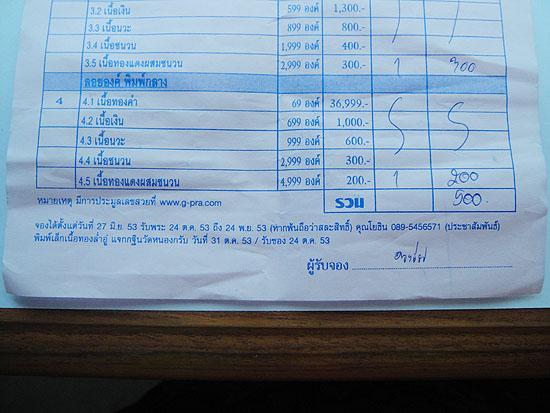 3.2 เนื้อเงิน 599 องค์ 1,300.-
3.3 เนื้อนวะ 899 องค์ 800.-
3.4 เนื้อชนวน 1,999 องค์ 400.-
3.5 เนื้อทองแดงผสมชนวน 2,999 องค์ 300.- 1 300
ลอยองค์ พิมพ์กลาง
4 4.1 เนื้อทองคำ 69 องค์ 36,999.-
4.2 เนื้อเงิน 699 องค์ 1,000.-
4.3 เนื้อนวะ 999 องค์ 600.-
4.4 เนื้อชนวน 2,999 องค์ 300.-
4.5 เนื้อทองแดงผสมชนวน 4,999 องค์ 200.- 1 200
หมายเหตุ มีการประมูลเลขสวยที่ www.g-pra.com รวม 500.-
จองได้ตั้งแต่วันที่ 27 มิ.ย. 53 รับพระ 24 ต.ค. 53 ถึง 24 พ.ย. 53 (หากพ้นถือว่าสละสิทธิ์) คุณโยธิน 089-5456571 (ประชาสัมพันธ์)
พิมพ์เล็กเนื้อทองลำอู่ แจกกฐินวัดหนองกรับ วันที่ 31 ต.ค. 53 / รับซอง 24 ต.ค. 53
ผู้รับจอง